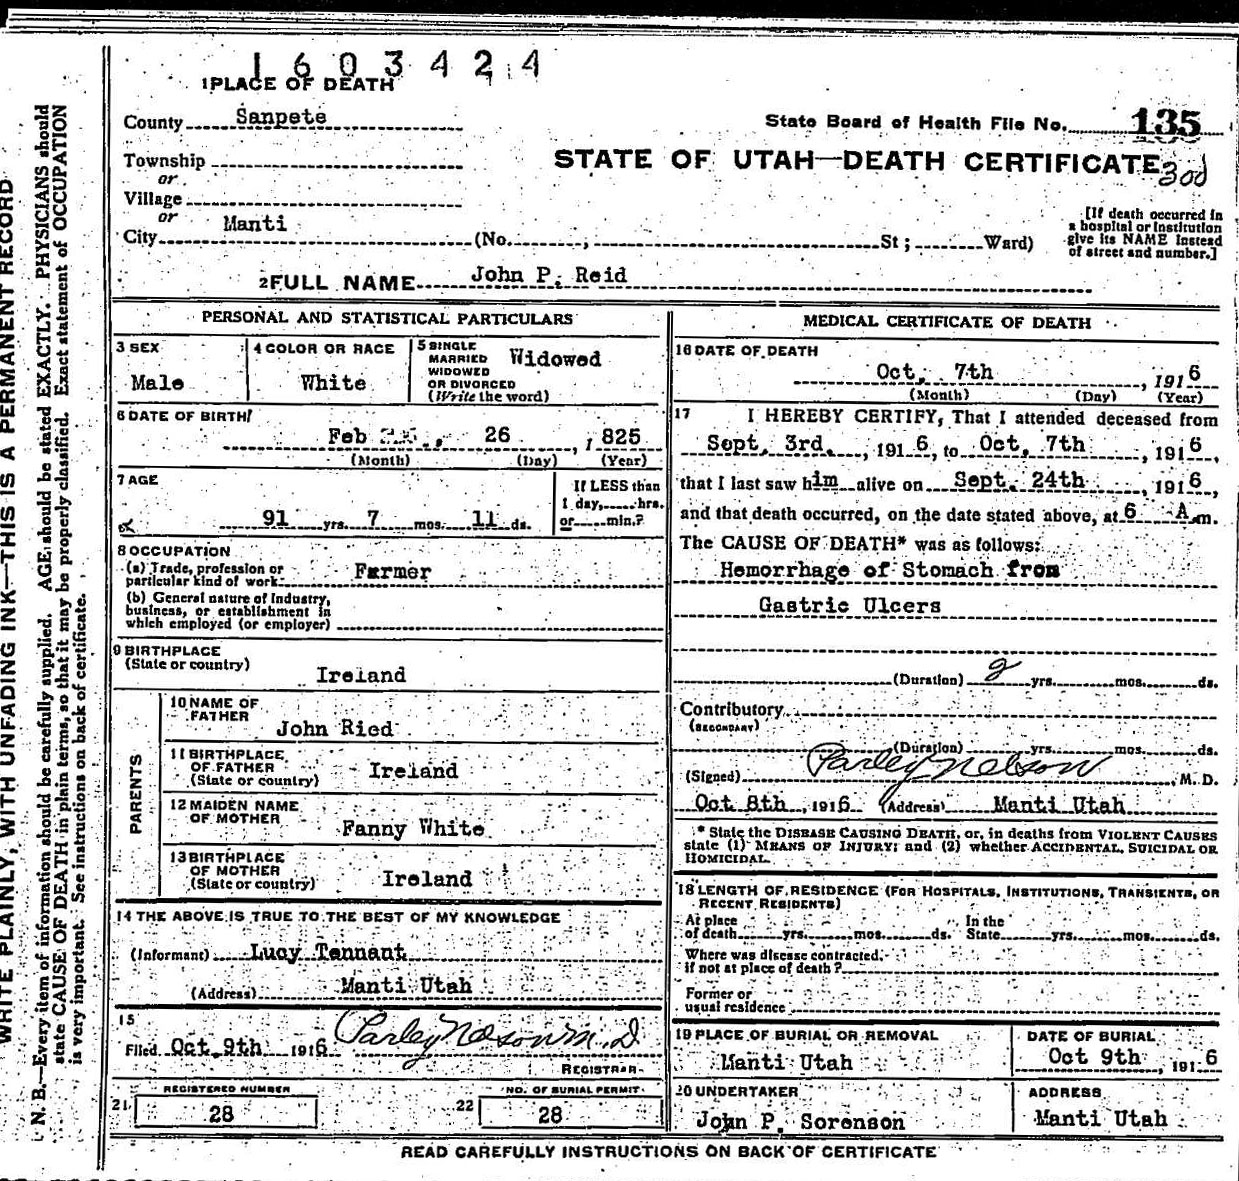 1603424
1 PLACE OF DEATH
County Sanpete
State Board of Health File No. 135
Township
or
STATE OF UTAH—DEATH CERTIFICATE
Village
or
City Manti (No. ; St; Ward)
[If death occurred in
a hospital or institution
give its NAME instead
of street and number.]
2 FULL NAME John P. Reid
PERSONAL AND STATISTICAL PARTICULARS
3 SEX
Male
4 COLOR OR RACE
White
5 SINGLE
MARRIED
WIDOWED
OR DIVORCED
(Write the word)
Widowed
6 DATE OF BIRTH
Feb 26, 1825
(Month) (Day) (Year)
7 AGE
91 yrs. 7 mos. 11 ds.
If LESS than
1 day, hrs.
or min.?
8 OCCUPATION
(a) Trade, profession or
particular kind of work Farmer
(b) General nature of Industry,
business, or establishment in
which employed (or employer)
9 BIRTHPLACE
(State or country)
Ireland
PARENTS
10 NAME OF
FATHER
John Ried
11 BIRTHPLACE
OF FATHER
(State or country)
Ireland
12 MAIDEN NAME
OF MOTHER
Fanny White
13 BIRTHPLACE
OF MOTHER
(State or country)
Ireland
14 THE ABOVE IS TRUE TO THE BEST OF MY KNOWLEDGE
(Informant) Lucy Tennant
(Address) Manti Utah
15
Filed Oct 9th 1916 Parley Nelson M.D.
REGISTRAR
REGISTERED NUMBER
21 28
NO. OF BURIAL PERMIT
22 28
MEDICAL CERTIFICATE OF DEATH
16 DATE OF DEATH
Oct, 7th, 1916
(Month) (Day) (Year)
17 I HEREBY CERTIFY, That I attended deceased from
Sept. 3rd., 1916, to Oct, 7th, 1916,
that I last saw him alive on Sept. 24th, 1916,
and that death occurred, on the date stated above, at 6 A.m.
The CAUSE OF DEATH* was as follows:
Hemorrhage of Stomach from
Gastric Ulcers
(Duration) 2 yrs. mos. ds.
Contributory
(SECONDARY)
(Duration) yrs. mos. ds.
(Signed) Parley Nelson, M. D.
Oct 8th, 1916 (Address) Manti Utah
* State the DISEASE CAUSING DEATH, or, in deaths from VIOLENT CAUSES
state (1) MEANS OF INJURY; and (2) whether ACCIDENTAL, SUICIDAL OR
HOMICIDAL.
18 LENGTH OF RESIDENCE (FOR HOSPITALS, INSTITUTIONS, TRANSIENTS, OR
RECENT RESIDENTS)
At place
of death yrs. mos. ds.
In the
State yrs. mos. ds.
Where was disease contracted,
if not at place of death?
Former or
usual residence
19 PLACE OF BURIAL OR REMOVAL
Manti Utah
DATE OF BURIAL
Oct 9th, 1916
20 UNDERTAKER
John P. Sorenson
ADDRESS
Manti Utah
READ CAREFULLY INSTRUCTIONS ON BACK OF CERTIFICATE
WRITE PLAINLY, WITH UNFADING INK—THIS IS A PERMANENT RECORD
N. B.—Every item of information should be carefully supplied. AGE should be stated EXACTLY. PHYSICIANS should
state CAUSE OF DEATH in plain terms, so that it may be properly classified. Exact statement of OCCUPATION
is very important. See instructions on back of certificate.